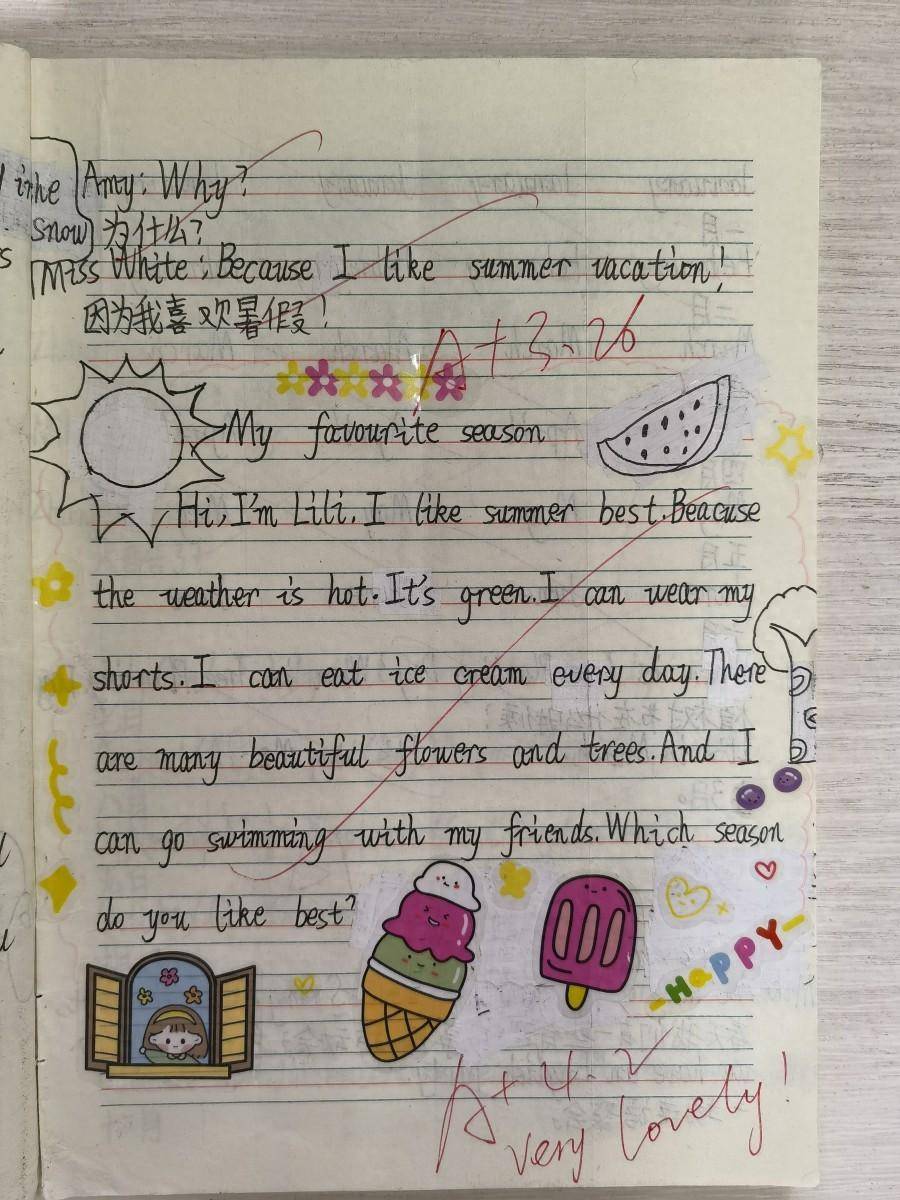 inhe
snow
Amy: Why?
为什么?
Miss White: Because I like summer vacation!
因为我喜欢暑假!
A+ 3.26
My favourite season
Hi, I'm Lili. I like summer best. Beacuse
the weather is hot. It's green. I can wear my
shorts. I can eat ice cream every day. There
are many beautiful flowers and trees. And I
can go swimming with my friends. Which season
do you like best?
HAPPY
A+ 4.2
very lovely!